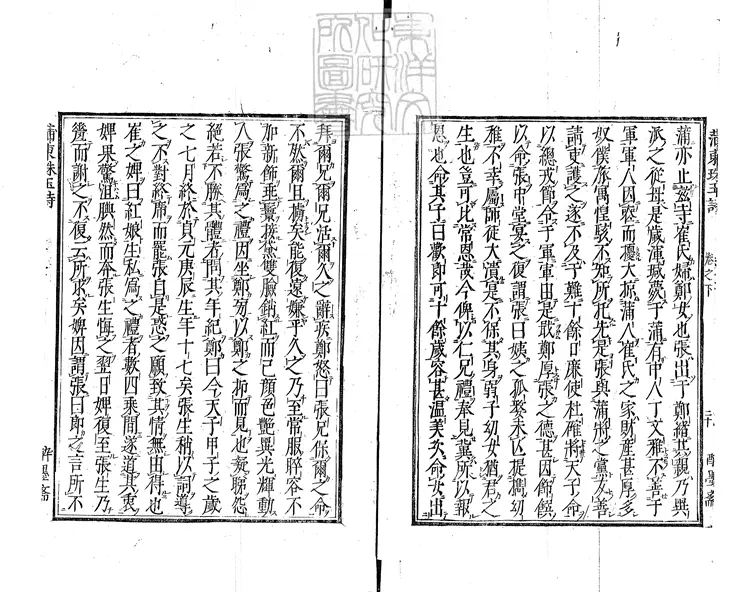 蒲東珠玉詩 卷之下 二十 酔墨斎
蒲亦止玆寺崔氏婦鄭女也張出于鄭緒其親乃異
派之從母是歳渾瑊薨于蒲有中人丁文雅不善于
軍軍人因喪而擾大掠蒲人崔氏之家財産甚厚多
奴僕旅寓惶駭不知所托先是張與蒲將之黨友善
請吏護之遂不及于難十餘日廉使杜確將天子命
以總戎節令于軍軍由是戢鄭厚張之德甚因飾饌
以命張中堂宴之復謂張曰姨之孤嫠未亡提攜幼
稚不幸屬師徒大潰寔不保其身弱子幼女猶君之
生也豈可比常恩哉今俾以仁兄禮奉見冀所以報
恩也命其子曰歡郎可十餘歳容甚温美次命女出
拜爾兄爾兄活爾久之辭疾鄭怒曰張兄保爾之命
不然爾且擄矣能復遠嫌乎久之乃至常服睟容不
加新飾垂鬟接黛雙臉銷紅而已顔色艶異光輝動
人張驚爲之禮因坐鄭旁以鄭之抑而見也凝睇怨
絶若不勝其體者問其年紀鄭曰今天子甲子之歳
之七月終於貞元庚辰生年十七矣張生稍以詞導
之不對終席而罷張自是惑之願致其情無由得也
崔之婢曰紅娘生私爲之禮者數四乘間遂道其衷
婢果驚沮腆然而奔張生悔之翌日婢復至張生乃
羞而謝之不復云所求矣婢因謂張曰郎之言所不
蒲東珠玉詩 酔墨斎
東洋文化研究所圖書